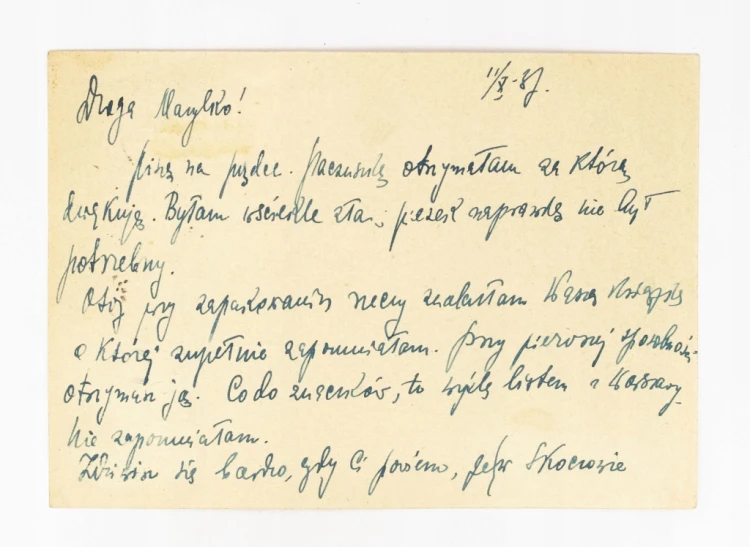 11/X-37.
Droga Marylko!
piszę na pędce. Paczuszkę otrzymałam za którą
dziękuję. Byłam wściekle zła, pieresk naprawdę nie był
potrzebny.
Otóż przy zapakowaniu rzeczy znalazłam Waszą książkę
o której zupełnie zapomniałam. Przy pierwszej sposobności
otrzymasz ją. Co do znaczków, to wyślę listem z Warszawy.
Nie zapomniałam.
Zdziwisz się bardzo, gdy Ci powiem, że w Skoczowie